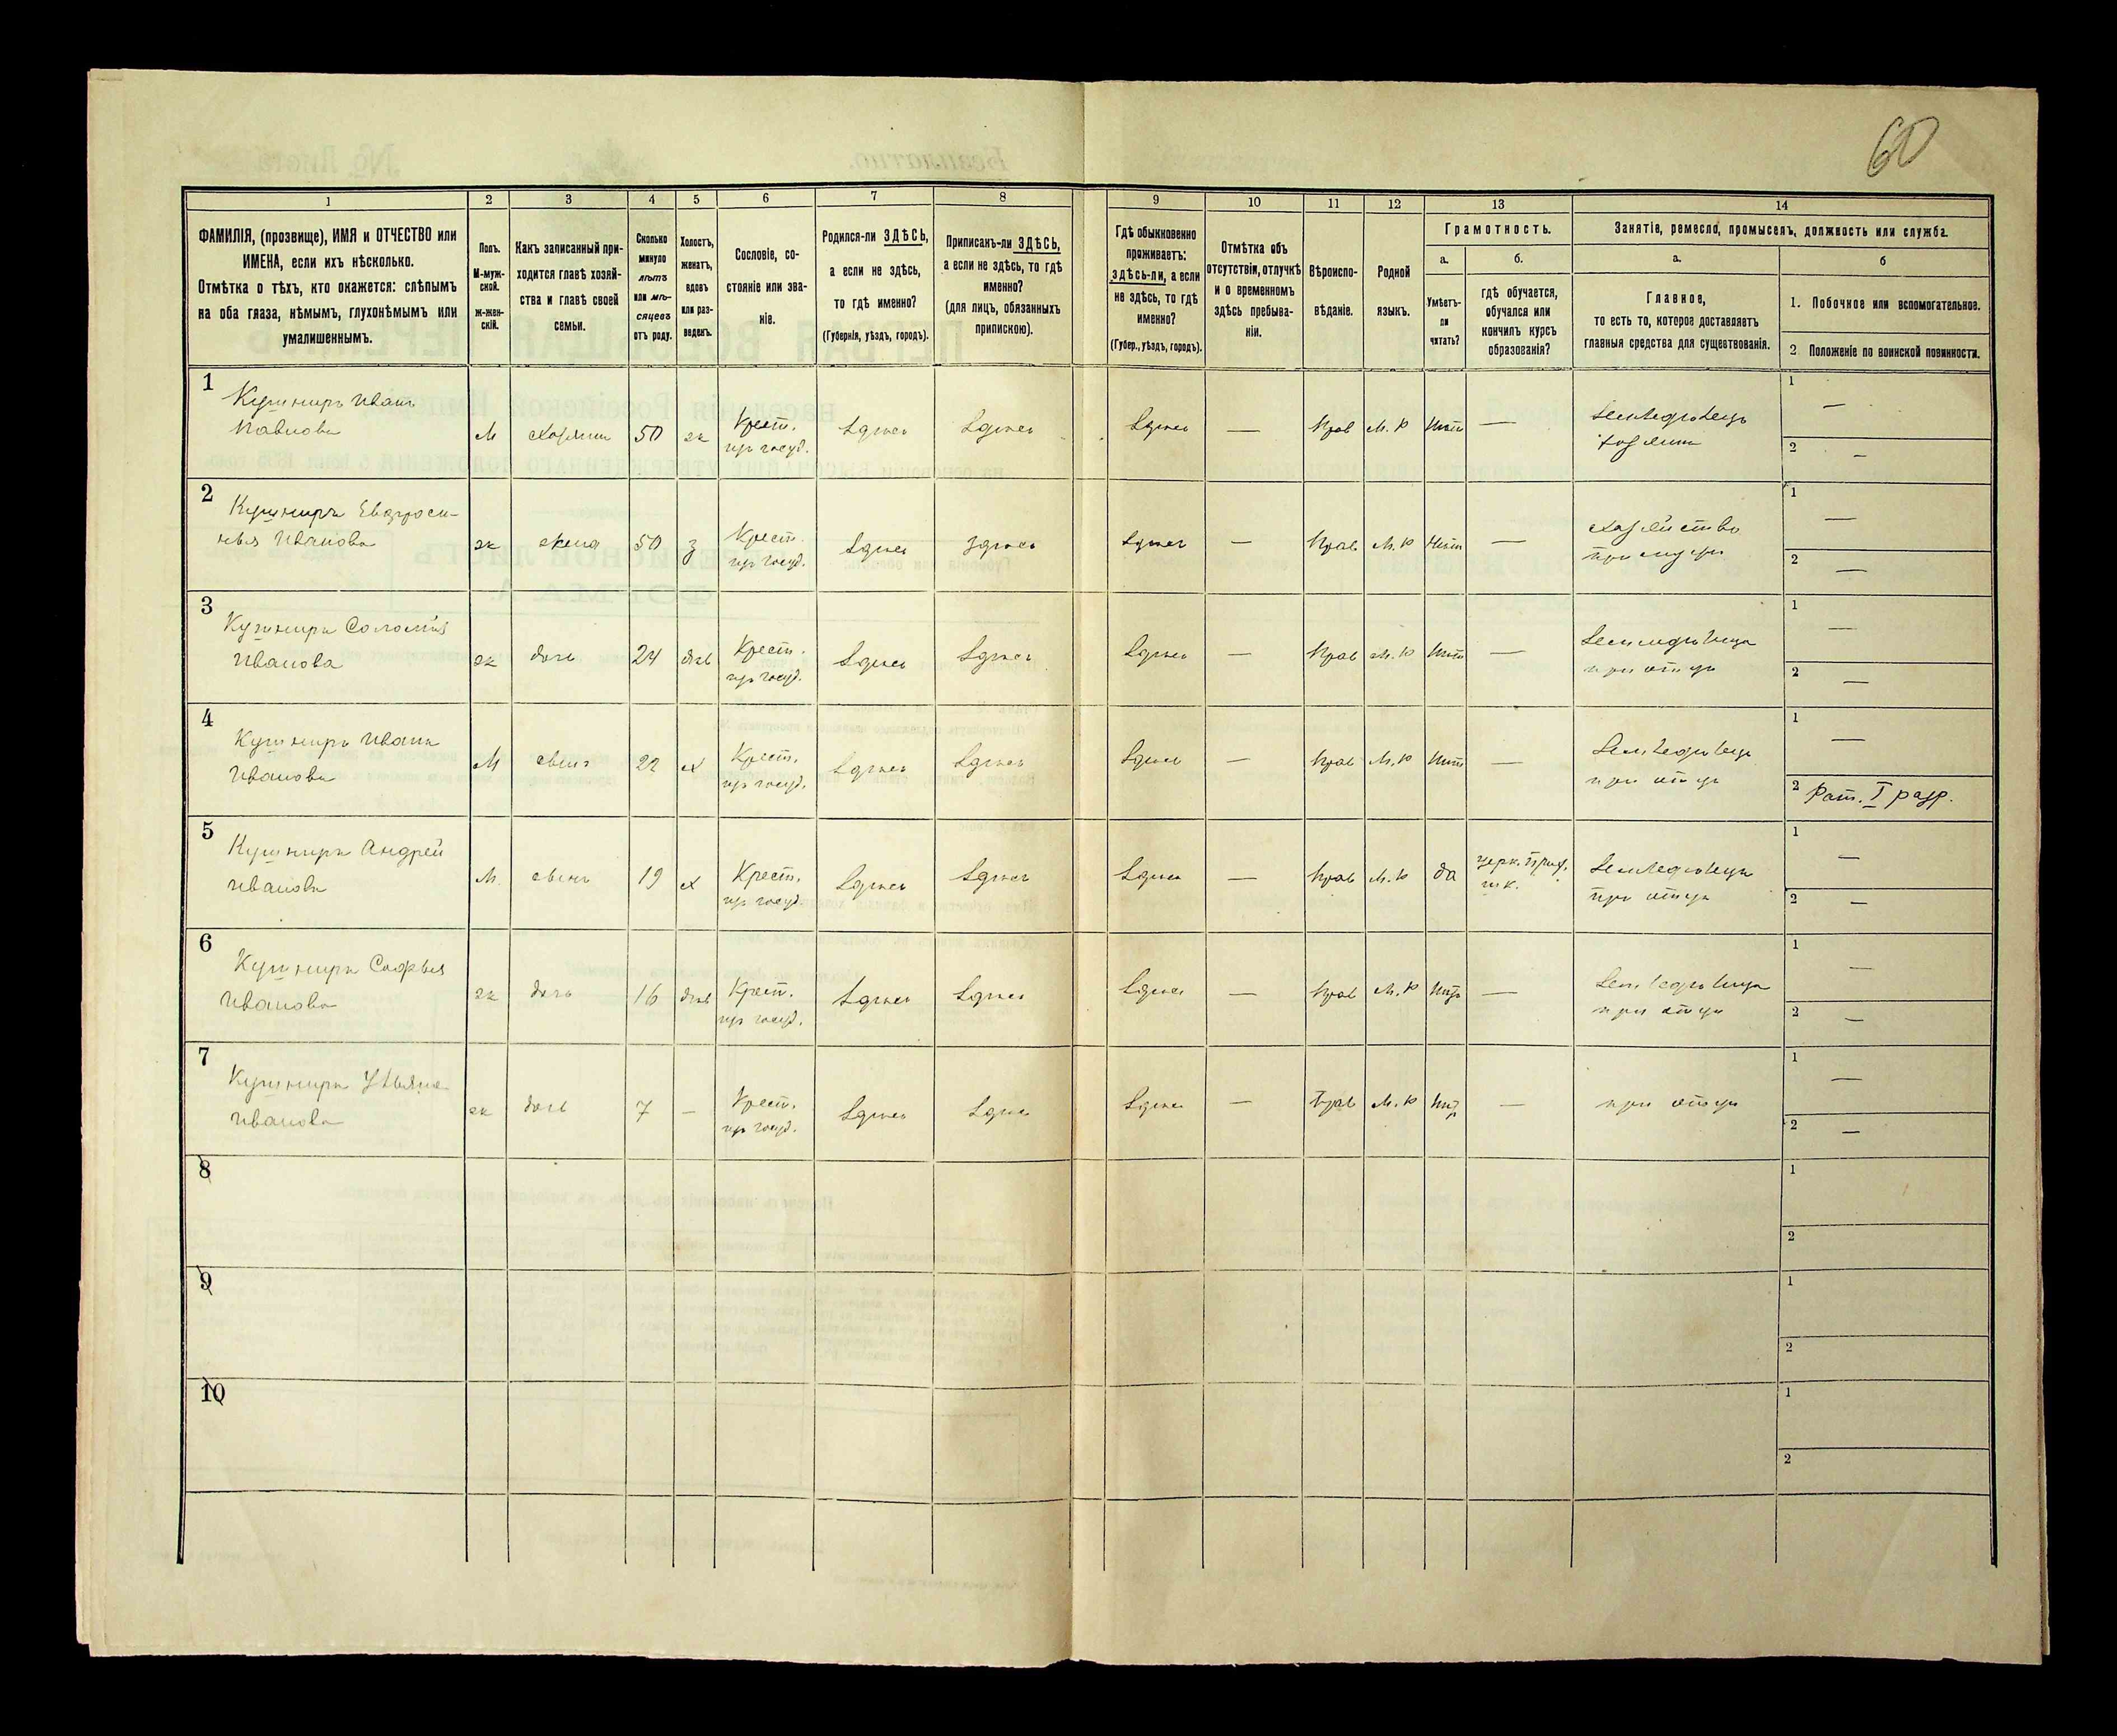 60
1 2 3 4 5 6 7 8 9 10 11 12 13 14
ФАМИЛІЯ, (прозвище), ИМЯ и ОТЧЕСТВО или
ИМЕНА, если ихъ нѣсколько.
Отмѣтка о тѣхъ, кто окажется: слѣпымъ
на оба глаза, нѣмымъ, глухонѣмымъ или
умалишеннымъ.
Полъ.
М-муж-
ской.
Ж-жен-
скій.
Какъ записанный при-
ходится главѣ хозяй-
ства и главѣ своей
семьи.
Сколько
минуло
лѣтъ
или мѣ-
сяцевъ
отъ роду.
Холостъ,
женатъ,
вдовъ
или раз-
веденъ.
Сословіе, со-
стояніе или зва-
ніе.
Родился-ли ЗДѢСЬ,
а если не здѣсь,
то гдѣ именно?
(Губернія, уѣздъ, городъ).
Приписанъ-ли ЗДѢСЬ,
а если не здѣсь, то гдѣ
именно?
(для лицъ, обязанныхъ
припискою).
Гдѣ обыкновенно
проживаетъ:
здѣсь-ли, а если
не здѣсь, то гдѣ
именно?
(Губер., уѣздъ, городъ).
Отмѣтка объ
отсутствіи, отлучкѣ
и о временномъ
здѣсь пребыва-
ніи.
Вѣроиспо-
вѣданіе.
Родной
языкъ.
Грамотность.
а.
Умѣетъ-
ли
читать?
б.
гдѣ обучается,
обучался или
кончилъ курсъ
образованія?
Занятіе, ремесло, промыселъ, должность или служба.
а.
Главное,
то есть то, которое доставляетъ
главныя средства для существованія.
б
1. Побочное или вспомогательное.
2. Положеніе по воинской повинности.
1 Кушниръ Иванъ М хозяинъ 50 ж Крест. Здѣсь Здѣсь Здѣсь — Прав М. Р нѣтъ — Земледѣлецъ 1 —
Павловъ изъ госуд. хозяинъ 2 —
2 Кушниръ Евфроси- ж жена 50 з Крест. Здѣсь Здѣсь Здѣсь — Прав М. Р нѣтъ — хозяйство 1 —
нья Иванова изъ госуд. при мужѣ 2 —
3 Кушниръ Соломія ж дочь 24 дѣв Крест. Здѣсь Здѣсь Здѣсь — Прав М. Р нѣтъ — 1 —
Иванова изъ госуд. при отцѣ 2 —
4 Кушниръ Иванъ М сынъ 22 х Крест. Здѣсь Здѣсь Здѣсь — Прав М. Р нѣтъ — Земледѣлецъ 1 —
Ивановъ изъ госуд. при отцѣ 2 Рат. I разр.
5 Кушниръ Андрей М сынъ 19 х Крест. Здѣсь Здѣсь Здѣсь — Прав М. Р да церк. прих. Земледѣлецъ 1 —
Ивановъ изъ госуд. шк. при отцѣ 2 —
6 Кушниръ Софья ж дочь 16 дѣв Крест. Здѣсь Здѣсь Здѣсь — Прав М. Р нѣтъ — 1 —
Иванова изъ госуд. при отцѣ 2 —
7 Кушниръ Ульяна ж дочь 7 — Крест. Здѣсь Здѣсь Здѣсь — Прав М. Р нѣтъ — при отцѣ 1 —
Иванова изъ госуд. 2 —
8 1
2
9 1
2
10 1
2